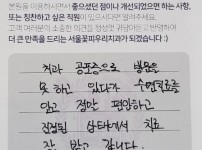 본원을 이용하시면서 좋으셨던 점이나 개선되었으면 하는 사항,
또는 칭찬하고 싶은 직원이 있으시다면 알려주세요.
고객 여러분의 소중한 의견을 정성껏 귀담아 반영하여
더 큰 만족을 드리는 서울꽃피우리치과가 되겠습니다 :)
치과 공포증으로 병원을
못 하고 있다가 수면진료를
알고 정말 편안하고
진정된 상태에서 치료
잘 받고 갑니다.